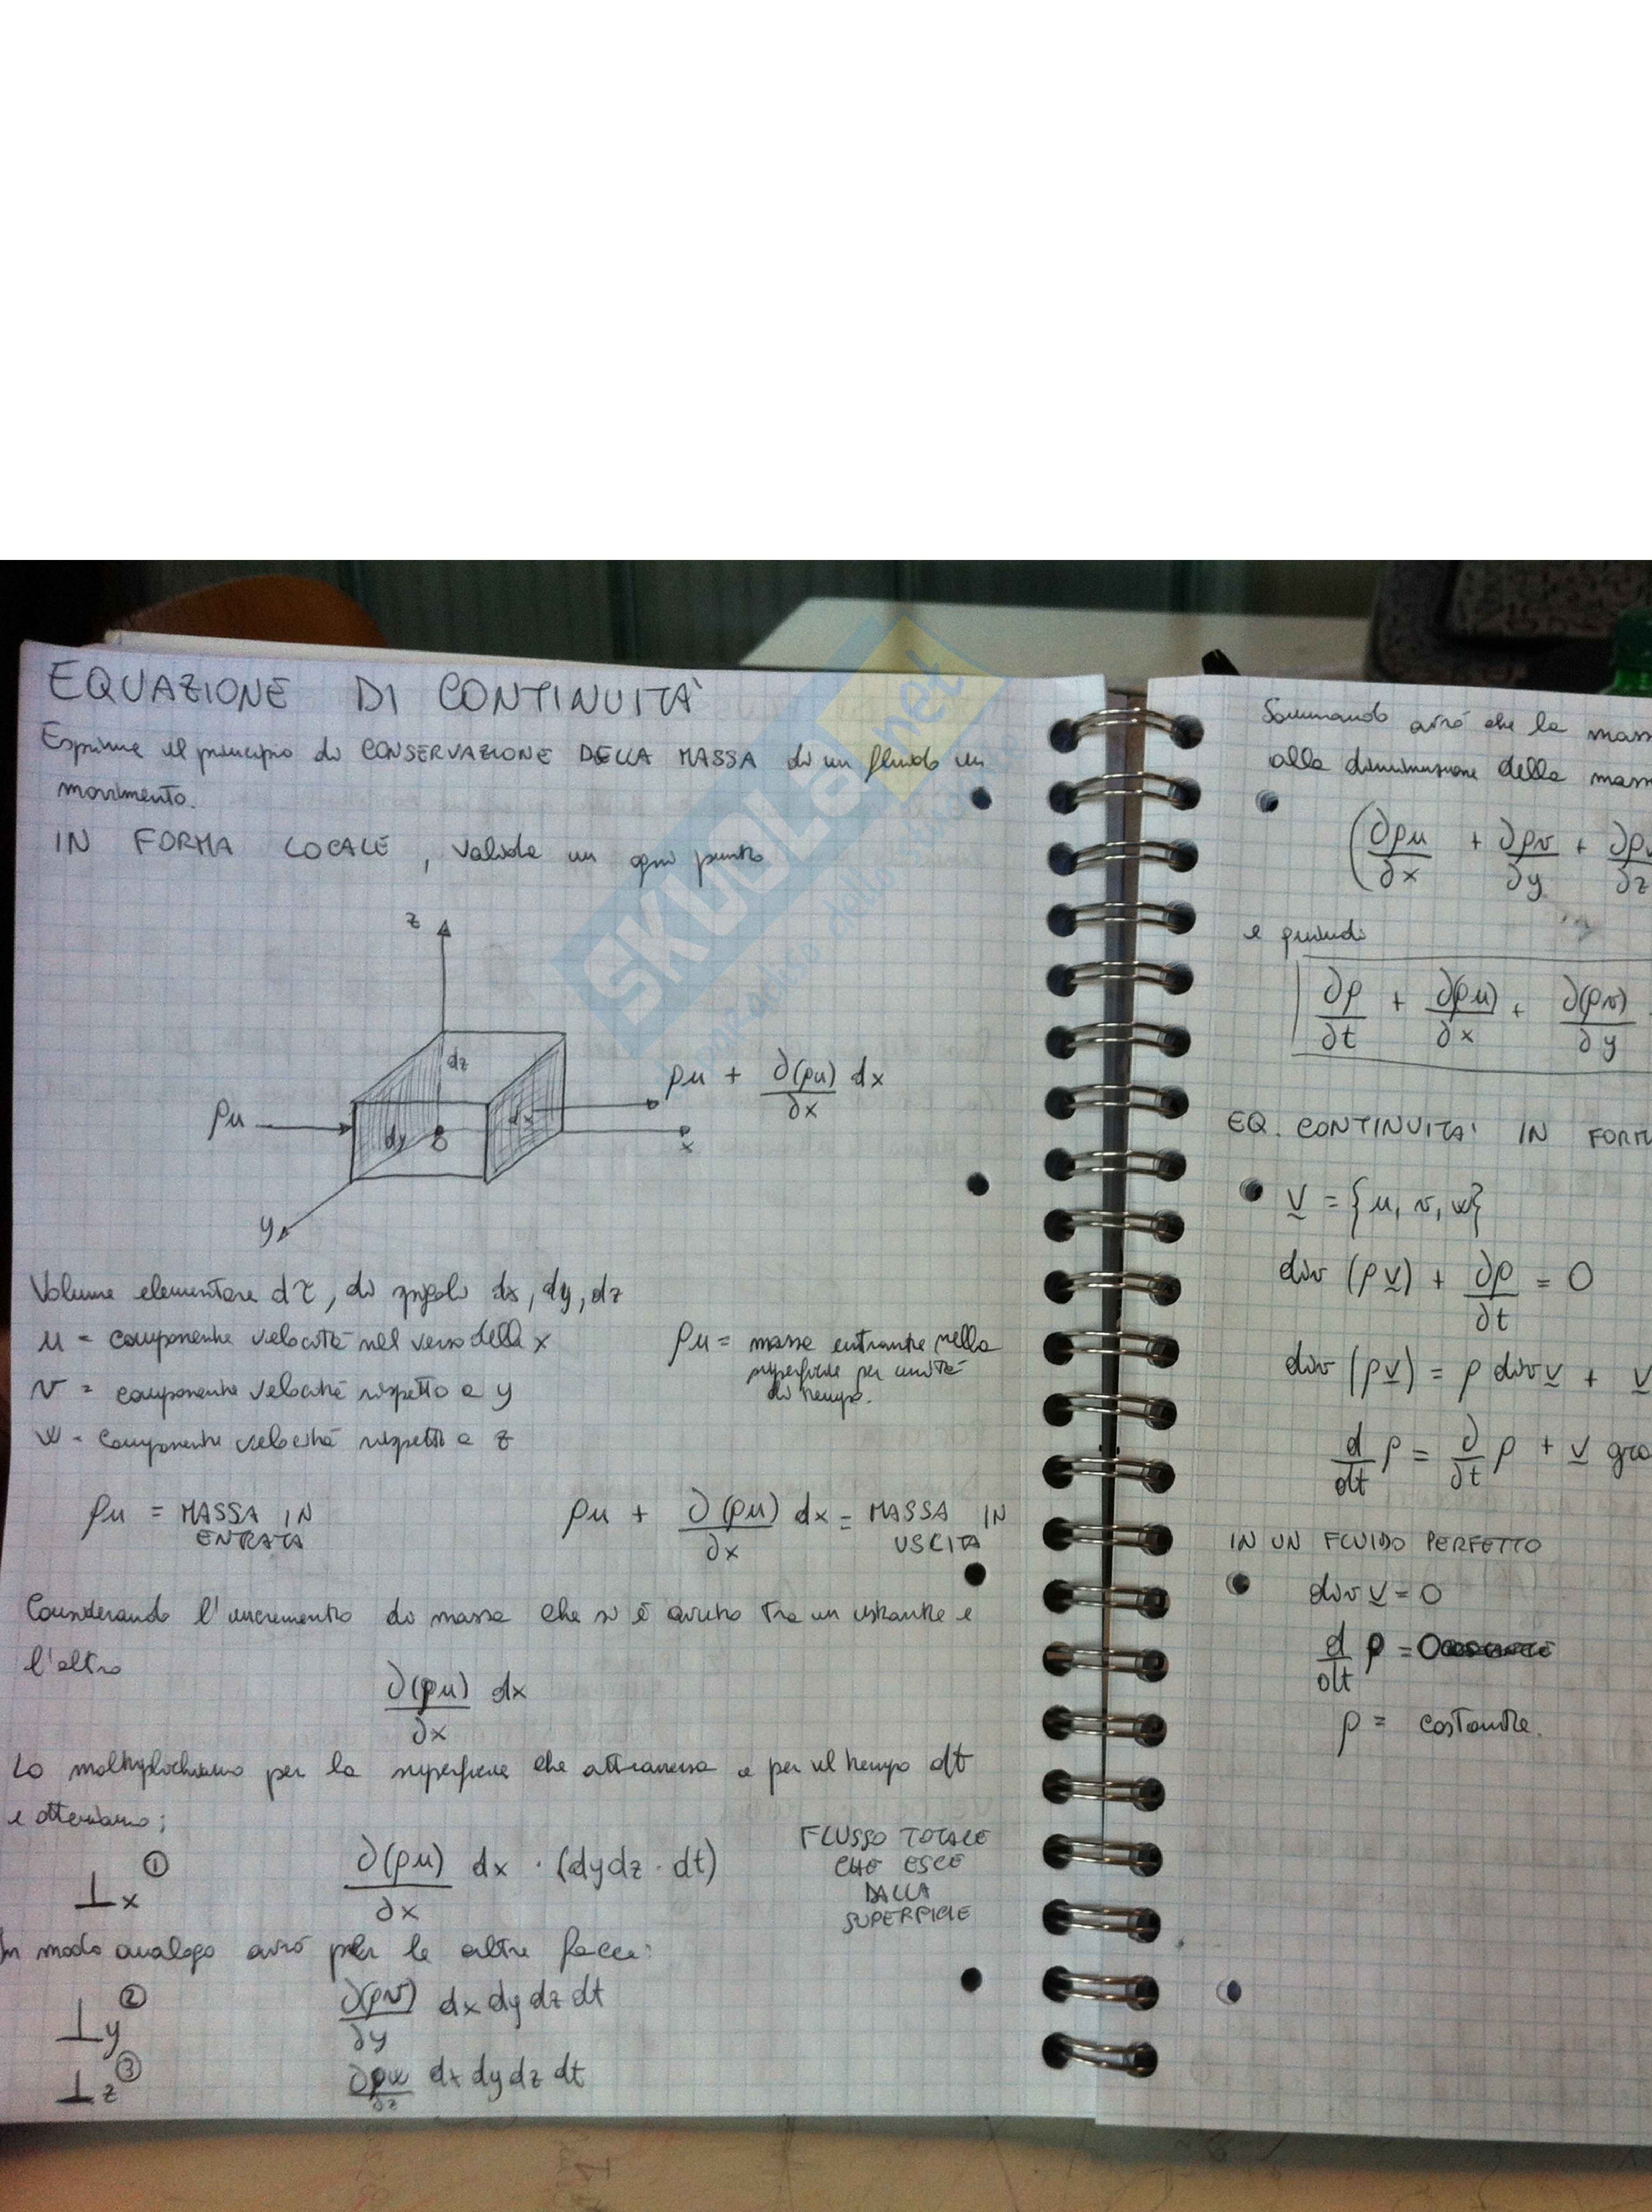 EQUAZIONE DI CONTINUITÀ
Esprime il principio di CONSERVAZIONE DELLA MASSA di un fluido in
movimento.
IN FORMA LOCALE, valida in ogni punto
z
dz
ρu + ∂(ρu)/∂x dx
ρu
dy
dx
x
y
Volume elementare dτ, di spigoli dx, dy, dz
u = componente velocità nel verso della x
ρu = massa entrante nella
superficie per unità
di tempo.
v = componente velocità rispetto a y
w = componente velocità rispetto a z
ρu = MASSA IN
ENTRATA
ρu + ∂(ρu)/∂x dx = MASSA IN
USCITA
Considerando l'incremento di massa che si è avuto tra un istante e
l'altro
∂(ρu)/∂x dx
Lo moltiplichiamo per la superficie che attraversa e per il tempo dt
e otteniamo:
⊥x ① ∂(ρu)/∂x dx · (dydz · dt)
FLUSSO TOTALE
CHE ESCE
DALLA
SUPERFICIE
In modo analogo avrò per le altre facce:
⊥y ② ∂(ρv)/∂y dx dy dz dt
⊥z ③ ∂ρw/∂z dx dy dz dt
Sommando avrò che la mass
alla diminuzione della mass
(∂ρu/∂x + ∂ρv/∂y + ∂ρ/∂z
e quindi
∂ρ/∂t + ∂(ρu)/∂x + ∂(ρv)/∂y
EQ. CONTINUITA' IN FORM
v = {u, v, w}
div (ρv) + ∂ρ/∂t = 0
div (ρv) = ρ div v + v
d/dt ρ = ∂/∂t ρ + v gra
IN UN FLUIDO PERFETTO
div v = 0
d/dt ρ = 0
ρ = costante.
SKUOLA.net